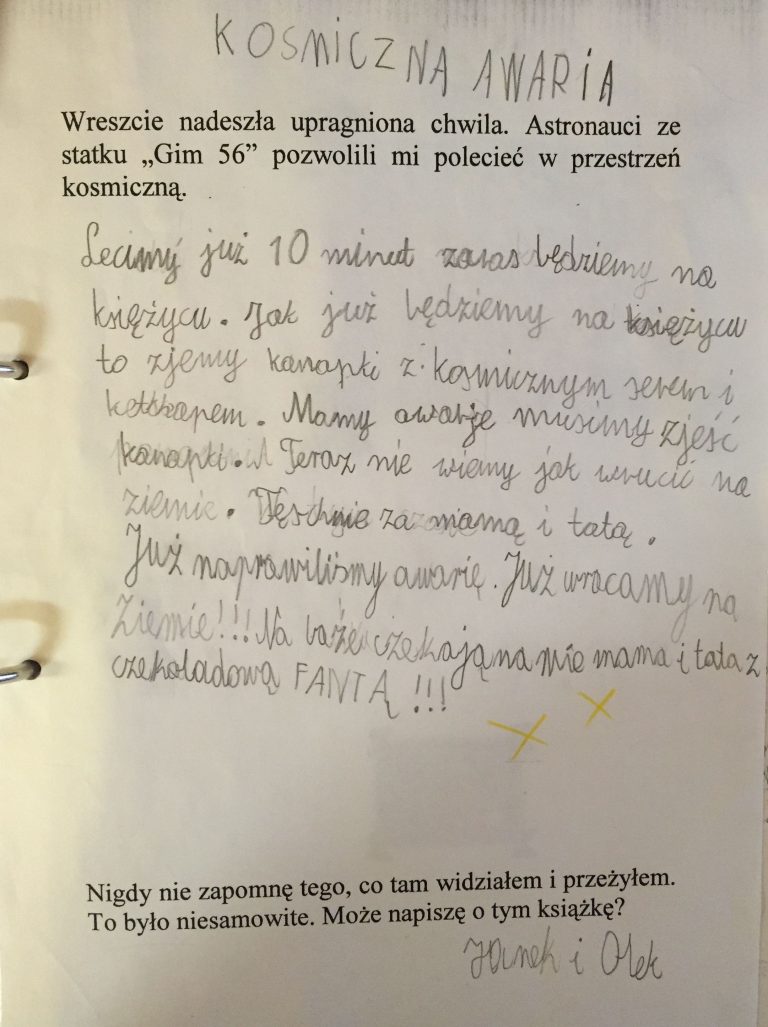 KOSMICZNA AWARIA
Wreszcie nadeszła upragniona chwila. Astronauci ze
statku „Gim 56” pozwolili mi polecieć w przestrzeń
kosmiczną.
Lecimy już 10 minut zaras będziemy na
księżycu. Jak już będziemy na księżycu
to zjemy kanapki z kosmicznym serem i
ketchapem. Mamy awarje musimy zjeść
kanapki. Teraz nie wiemy jak wrucić na
ziemie. Tęschnie za mamą i tatą.
Już naprawiliśmy awarię. Już wracamy na
Ziemie!!! Na baźe czekają na mie mama i tata z
czekoladową FANTĄ!!!
Nigdy nie zapomnę tego, co tam widziałem i przeżyłem.
To było niesamowite. Może napiszę o tym książkę?
Janek i Olek